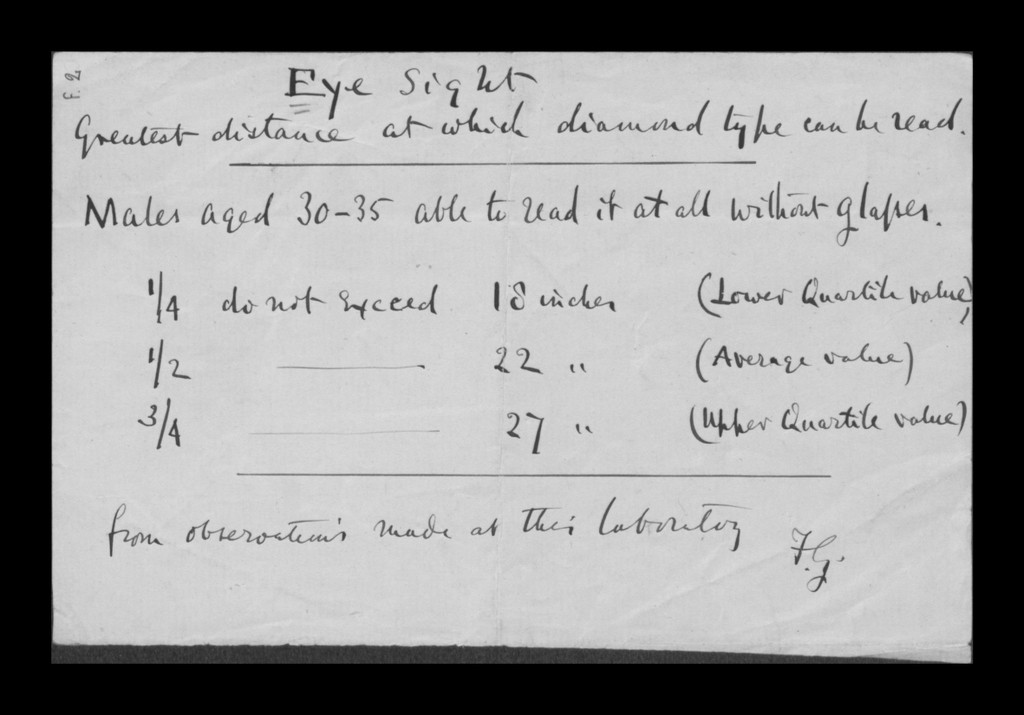 f. 2
Eye Sight
Greatest distance at which diamond type can be read.
Males aged 30-35 able to read it at all without glasses.
1/4 do not exceed 18 inches (Lower Quartile value)
1/2 —— 22 " (Average value)
3/4 —— 27 " (Upper Quartile value)
from observations made at this laboratory
F.G.